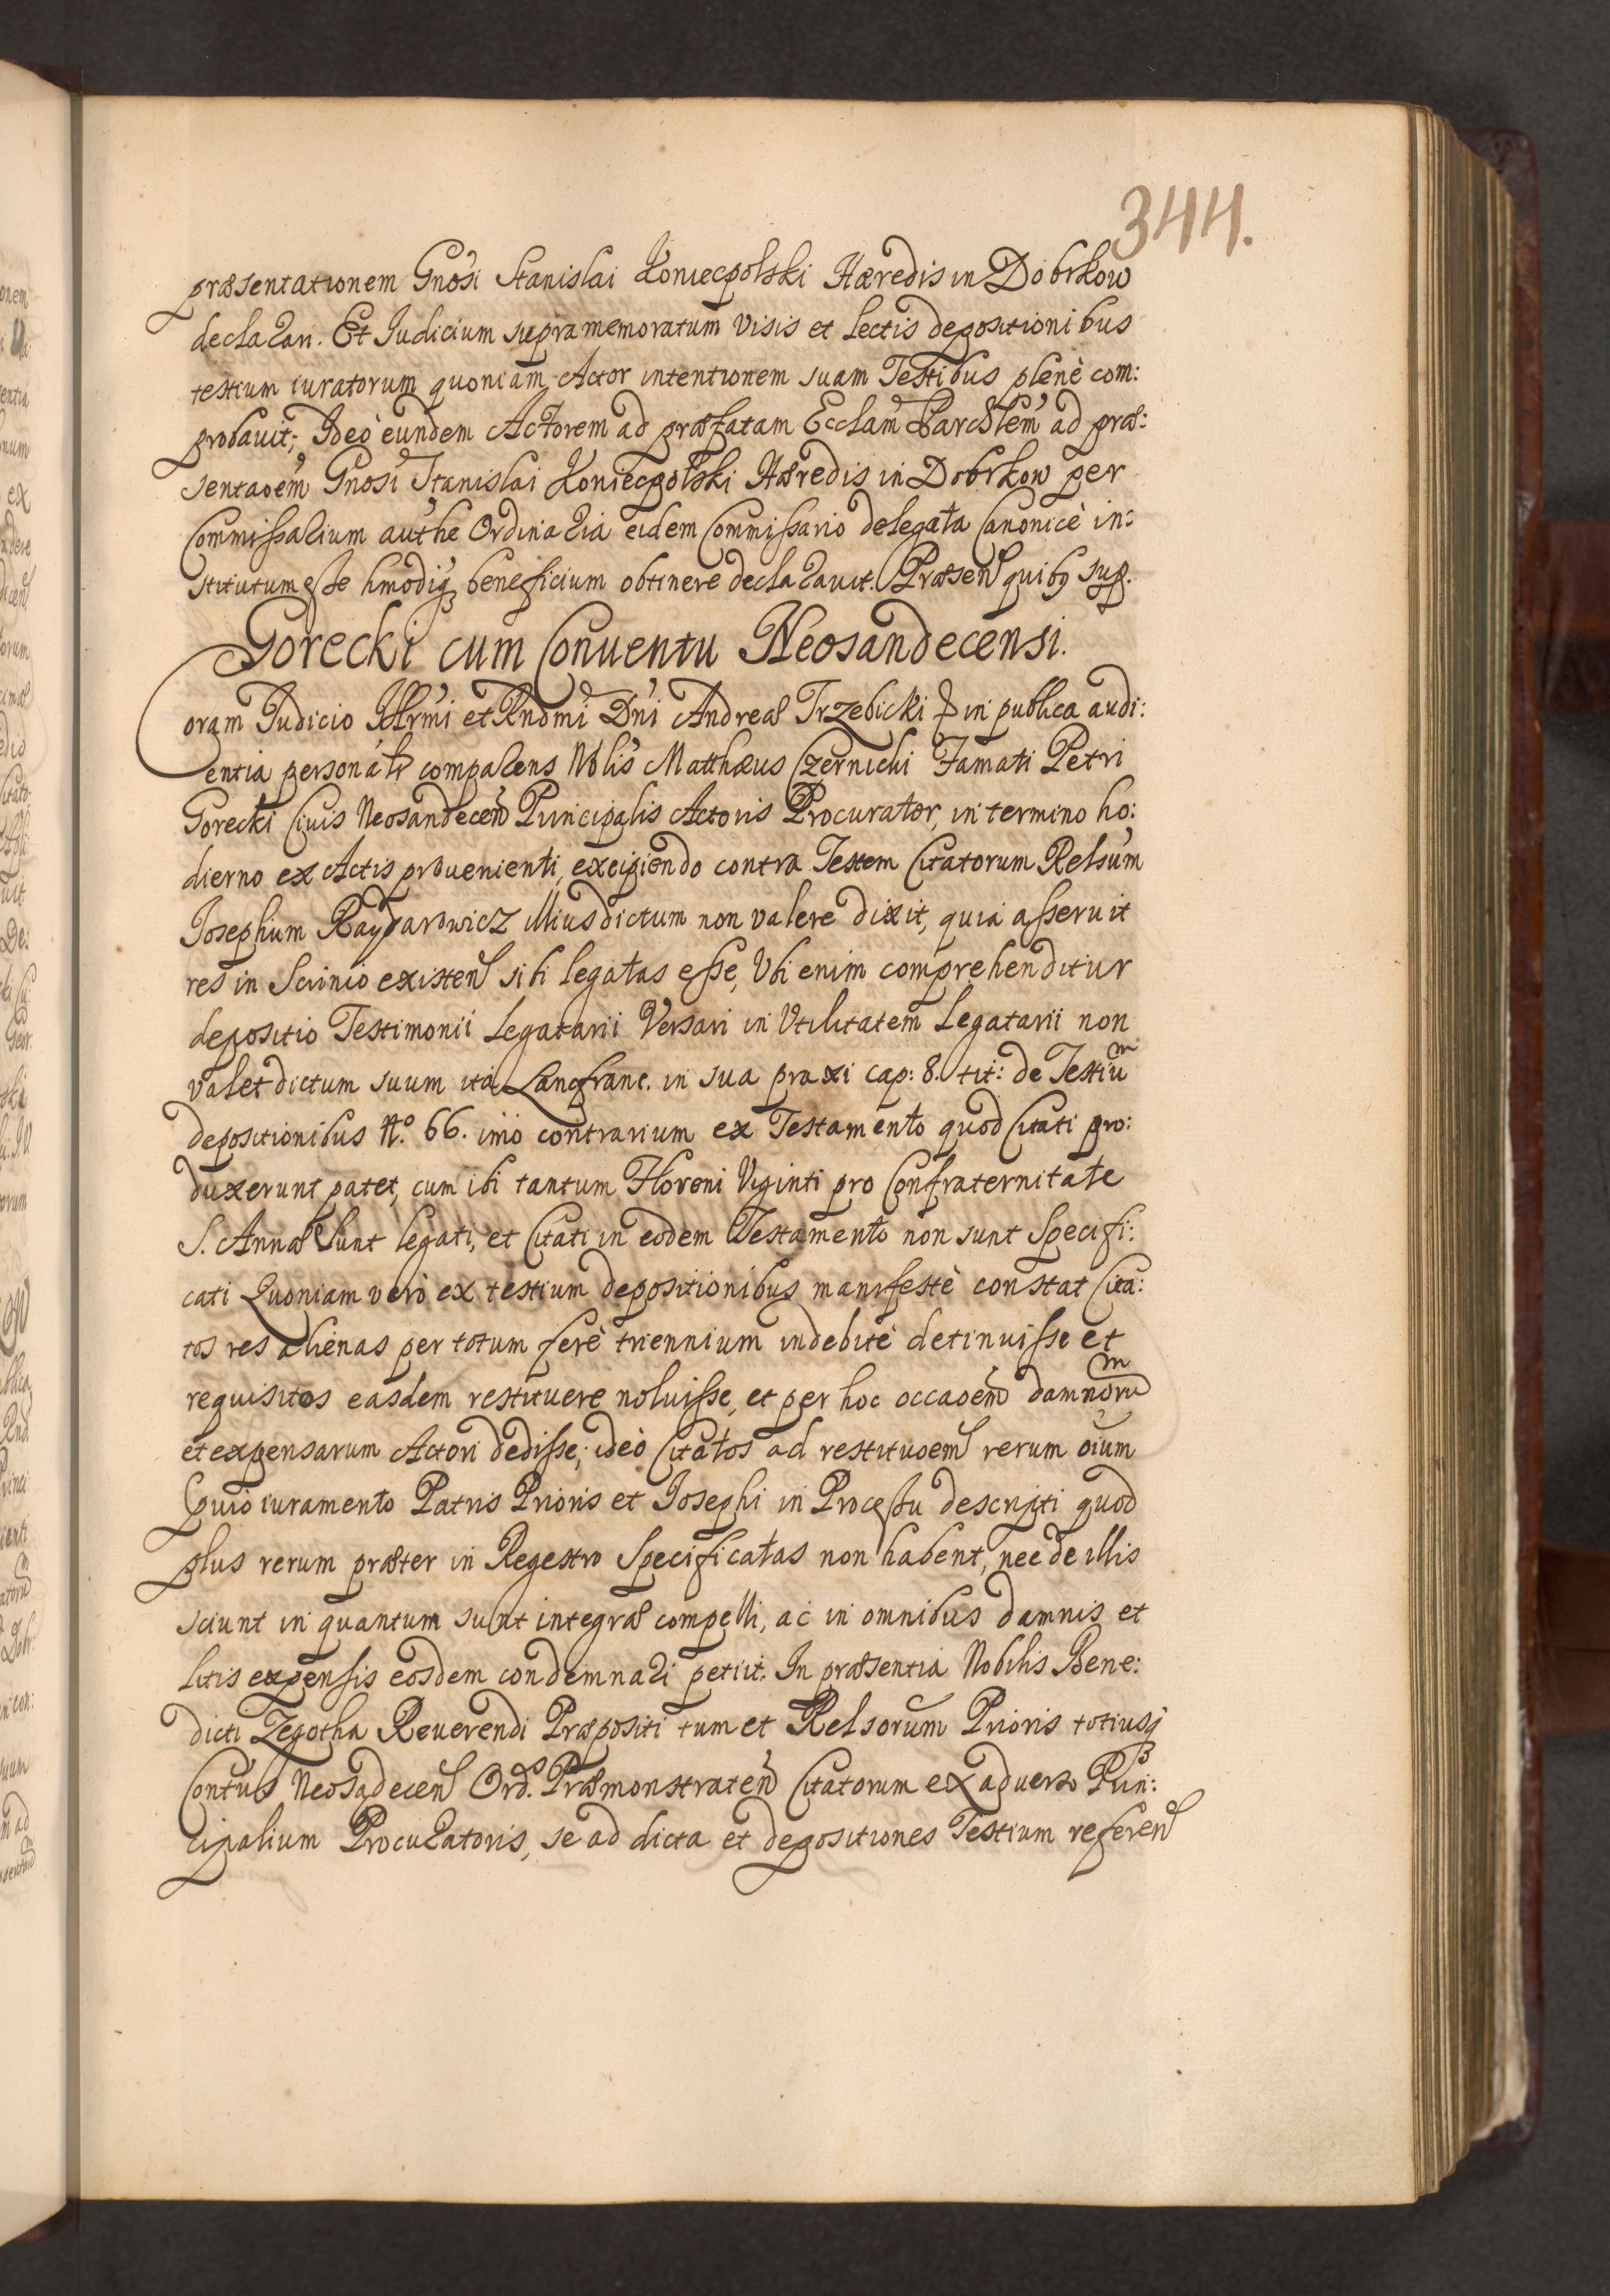 344.
præsentationem Gnosi Stanislai Koniecpolski Hæredis in Dobrkow
declarari. Et Judicium supramemoratum visis et lectis depositionibus
testium iuratorum quoniam Actor intentionem suam Testibus plenè com:
probauit; Ideò eundem Actorem ad præfatam Ecclam Parchlem ad præ:
sentaoem Gnosi Stanislai Koniecpolski Hæredis in Dobrkow per
Commissarium authe Ordinaria eidem Commissario delegata Canonicè in:
stitutum esse hmodiq beneficium obtinere declarauit. Præsen quibq sup.
Gorecki cum Conuentu Neosandecensi.
Coram Judicio Illrmi et Rndmi Dni Andreæ Trzebicki in publica audi:
entia personalr comparens Nblis Matthæus Czernicki Famati Petri
Gorecki Ciuis Neosandecen Principalis Actoris Procurator, in termino ho:
dierno ex Actis prouenienti, excipiendo contra Testem Citatorum Relsum
Josephum Raydarowicz illius dictum non valere dixit, quia asseruit
res in Scrinio existen sibi legatas esse, Vbi enim comprehenditur
depositio Testimonii Legatarii Versari in Vtilitatem Legatarii non
valet dictum suum ita Lancfranc. in sua praxi cap: 8. tit: de Testiu m
depositionibus No. 66. imò contrarium ex Testamento quod Citati pro:
duxerunt patet, cum ibi tantum Floreni Viginti pro Confraternitate
S. Annæ sunt legati, et Citati in eodem Testamento non sunt Specifi:
cati Quoniam verò ex testium depositionibus manifestè constat Cita:
tos res alienas per totum ferè triennium indebitè detinuisse et
requisitos easdem restituere noluisse, et per hoc occaoem damnoru m
et expensarum Actori dedisse; ideò Citatos ad restituoem rerum oium
Præuio iuramento Patris Prioris et Josephi in Processu descripti quod
plus rerum præter in Regestro Specificatas non habent, nec de illis
sciunt in quantum sunt integræ compelli, ac in omnibus damnis et
litis expensis eosdem condemnari petiit. In præsentia Nobilis Bene:
dicti Zegotha Reuerendi Præpositi tum et Relsorum Prioris totiusq
Contus Neosadecen Ord. Præmonstraten Citatorum ex aduerso Prin:
cipalium Procuratoris, se ad dicta et depositiones Testium referen